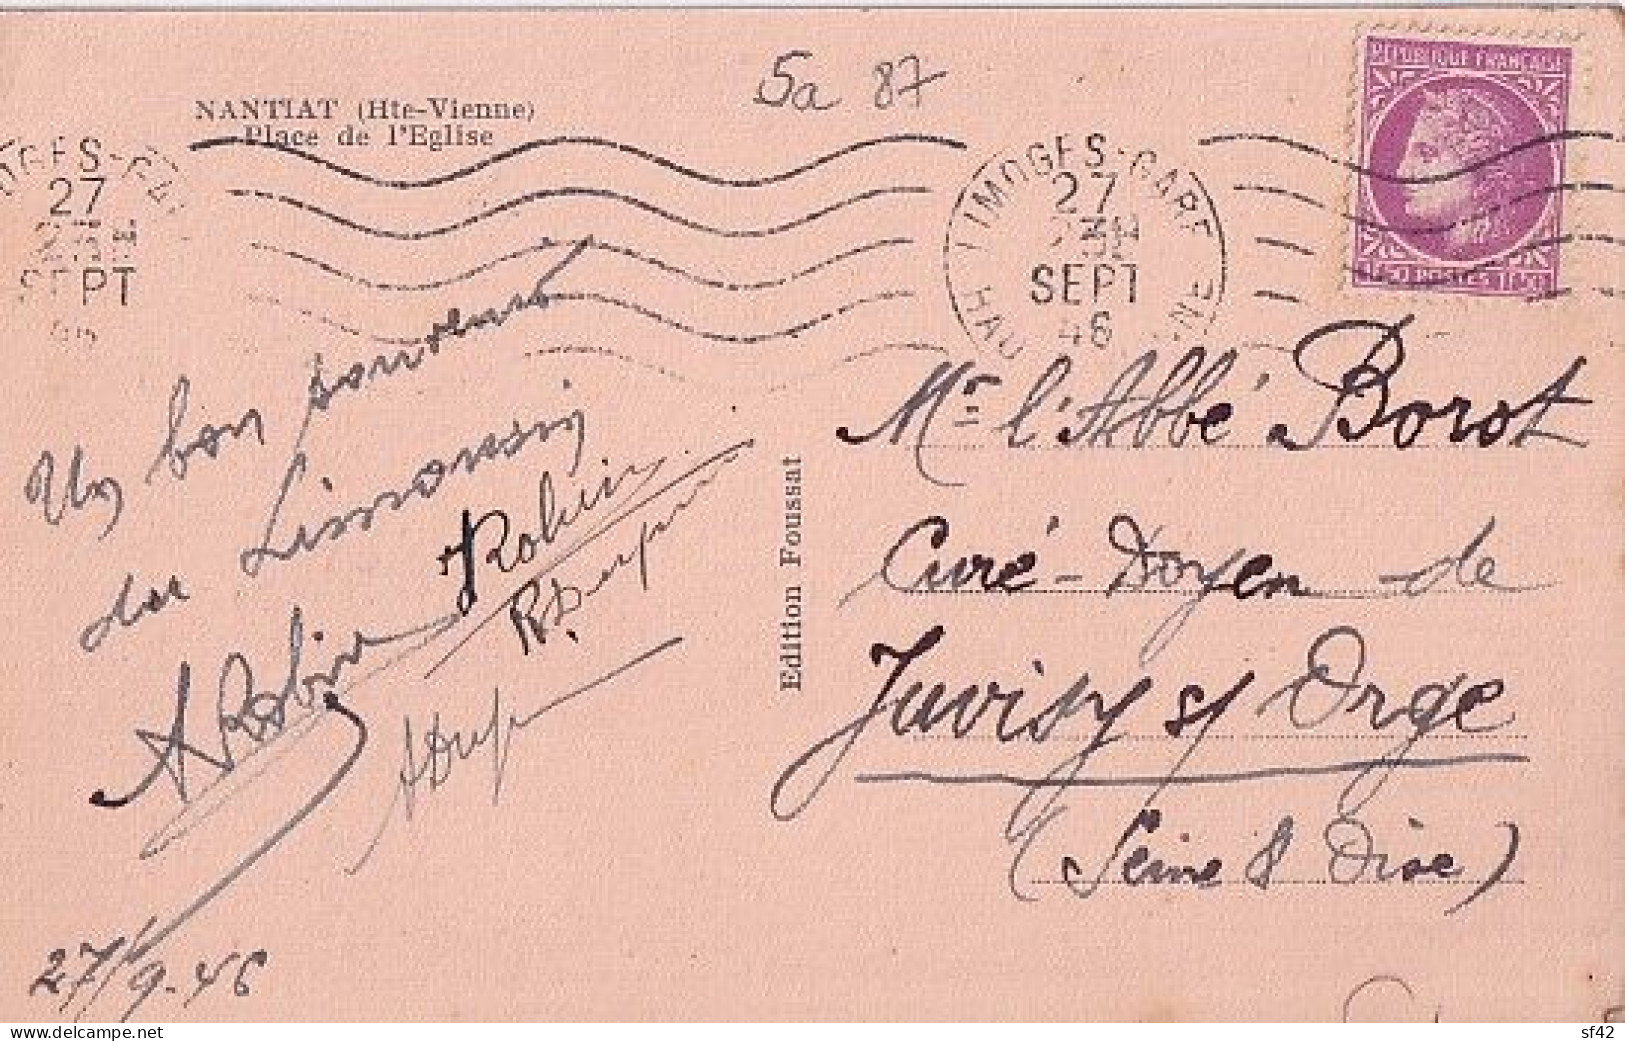 5a 87
NANTIAT (Hte-Vienne)
Place de l'Eglise
OGES-GA
27
SEPT
LIMOGES-GARE
27
SEPT
46
HAU
NE
REPUBLIQUE FRANÇAISE
1F50 POSTES 1F50
Un bon souvenir
du Limousin
Robin
A Robin
R. Dupin
A Dupin
27/9-46
Edition Foussat
Mr l'Abbé Borot
Curé-Doyen de
Juvisy s/ Orge
(Seine & Oise)
delcampe.net
sf42